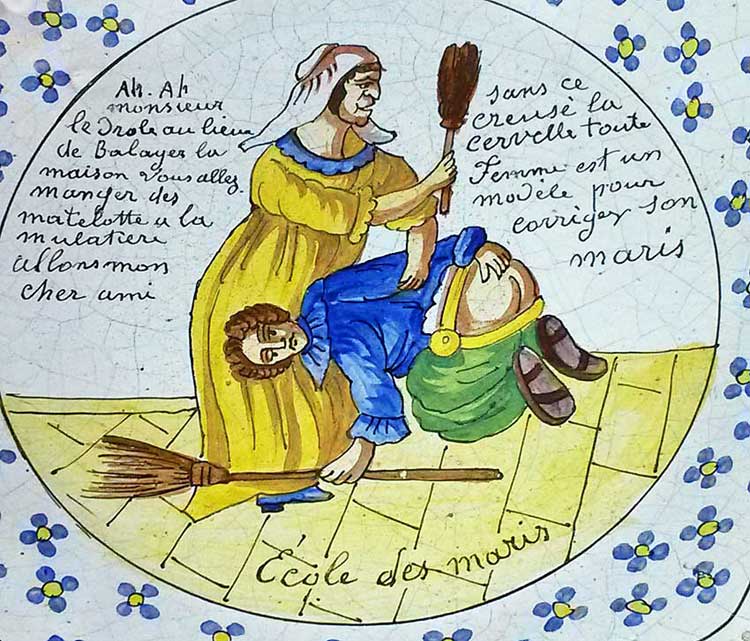 Ah. Ah
monsieur
le Drole au lieux
de Balayer la
maison vous allez
manger des
matelotte a la
mulatiere
allons mon
cher ami
sans ce
creusé la
cervelle toute
Femme est un
modèle pour
corriger son
maris
École des maris